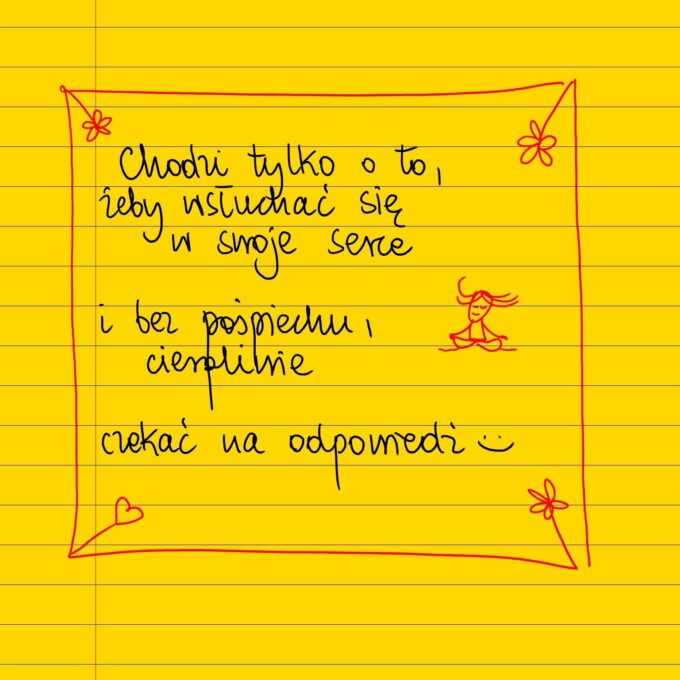 Chodzi tylko o to,
żeby wsłuchać się
w swoje serce
i bez pośpiechu,
cierpliwie
czekać na odpowiedź